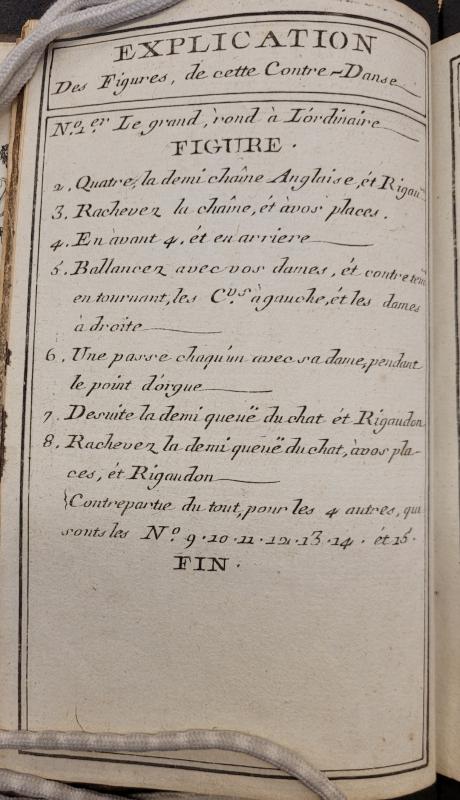 EXPLICATION
Des Figures, de cette Contre-Danse
N.º 1.er Le grand, rond à L'órdinaire
FIGURE.
2. Quatre, la demi chaîne Anglaise, ét Rigau.on
3. Rachevez la chaîne, ét àvos places.
4. En àvant 4. ét en arriere
5. Ballancez avec vos dames, ét contretems
en tournant, les C.vrs à gauche, ét les dames
à droite
6. Une passe chaqu'un avec sa dame, pendant
le point d'órgue
7. Desuite la demi queuë du chat ét Rigaudon
8. Rachevez la demi queuë du chat, àvos pla-
ces, ét Rigaudon
Contrepartie du tout, pour les 4 autres, qui
sonts les N.º 9. 10. 11. 12. 13. 14. ét 15.
FIN.